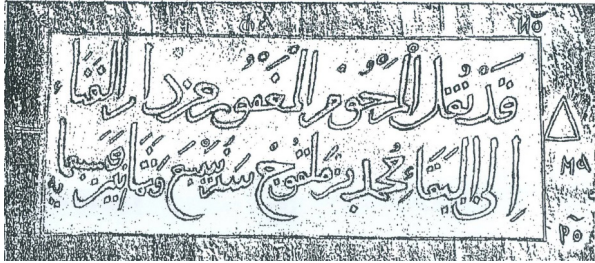 قد نقل المرحوم المغفور من دار الفناء
الى البقاء محمد بن ملقوج سنة سبع وثمانين وتسعمايه